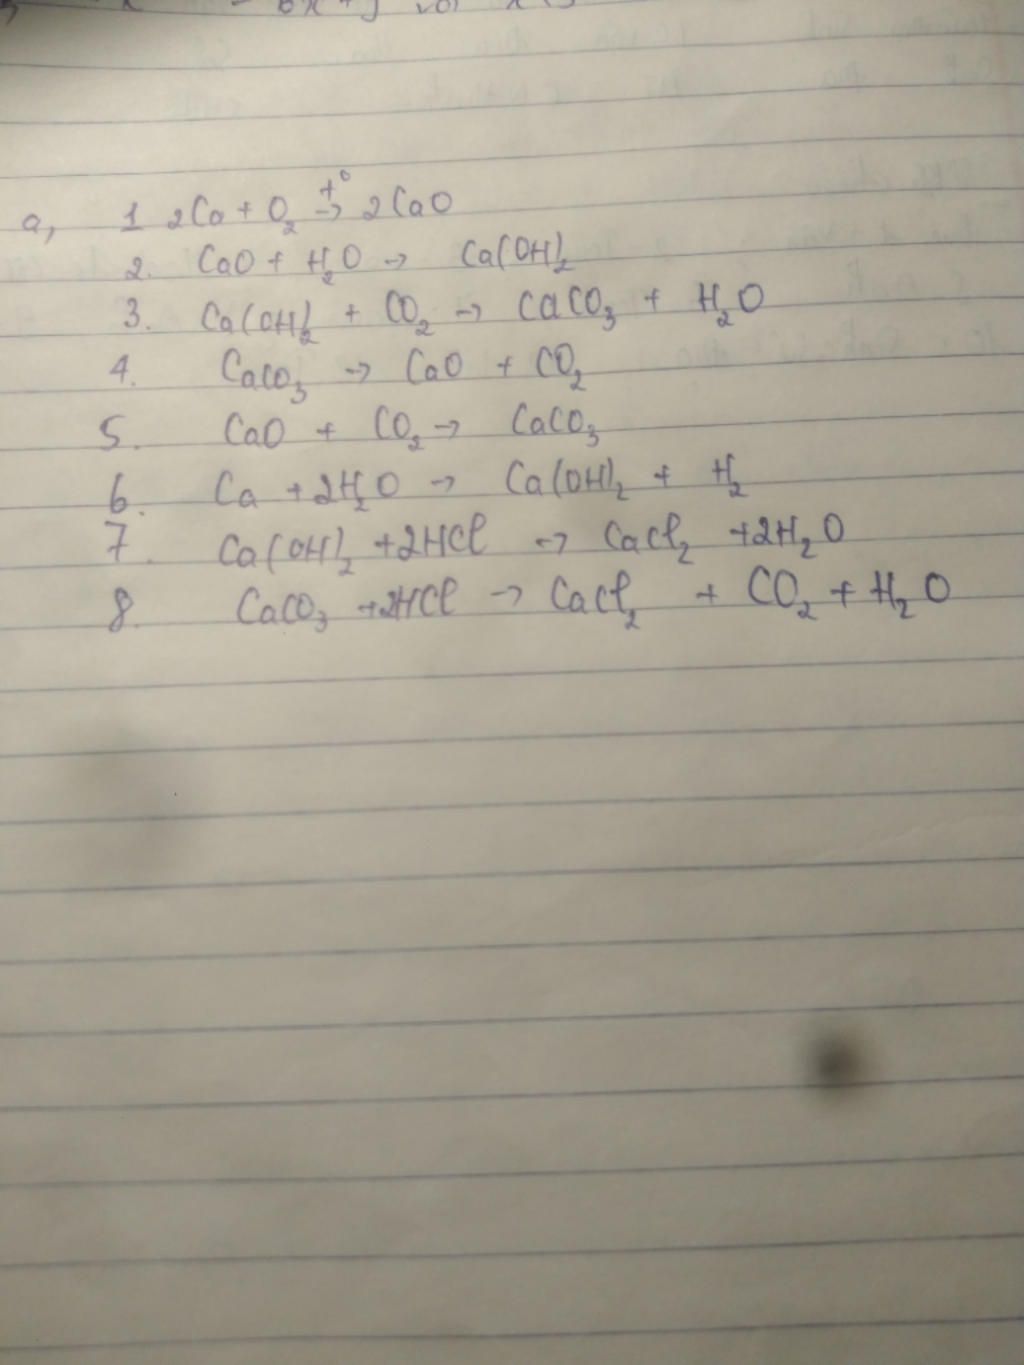 a, 1 2Ca + O₂ →t° 2CaO
2. CaO + H₂O → Ca(OH)₂
3. Ca(OH)₂ + CO₂ → CaCO₃ + H₂O
4. CaCO₃ → CaO + CO₂
5. CaO + CO₂ → CaCO₃
6. Ca + 2H₂O → Ca(OH)₂ + H₂
7. Ca(OH)₂ + 2HCl → CaCl₂ + 2H₂O
8. CaCO₃ + 2HCl → CaCl₂ + CO₂ + H₂O